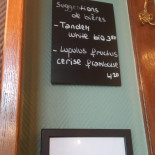 Suggestions
de bières
- Tandem
White bio 3,80
- Lupulus fructus
cerise framboise
4,20